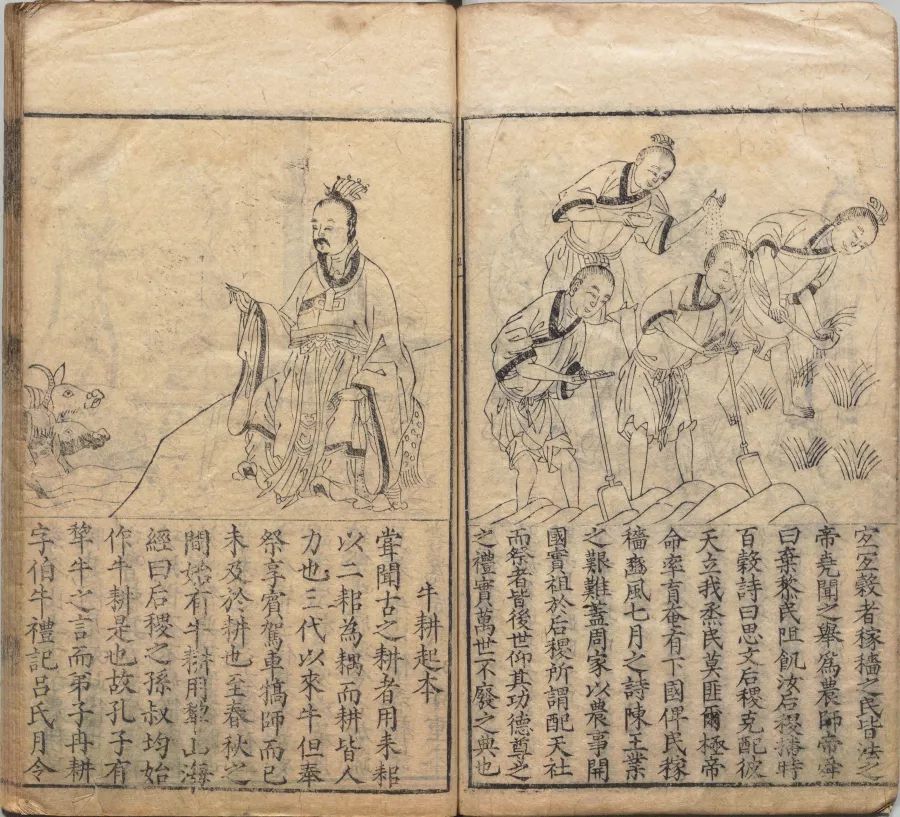 宐五穀者稼穡之民皆法之
帝堯聞之舉爲農師帝舜
曰棄黎民阻飢汝后稷播時
百穀詩曰思文后稷克配彼
天立我烝民莫匪爾極帝
命率育奄有下國俾民稼
穡豳風七月之詩陳王業
之艱難蓋周家以農事開
國實祖於后稷所謂配天社
而祭者皆後世仰其功德尊之
之禮實萬世不廢之典也
牛耕起本
甞聞古之耕者用耒耜
以二耜為耦而耕皆人
力也三代以來牛但奉
祭享賓駕車犒師而已
未及於耕也至春秋之
間始有牛耕用犂山海
經曰后稷之孫叔均始
作牛耕是也故孔子有
犂牛之言而弟子冉耕
字伯牛禮記呂氏月令